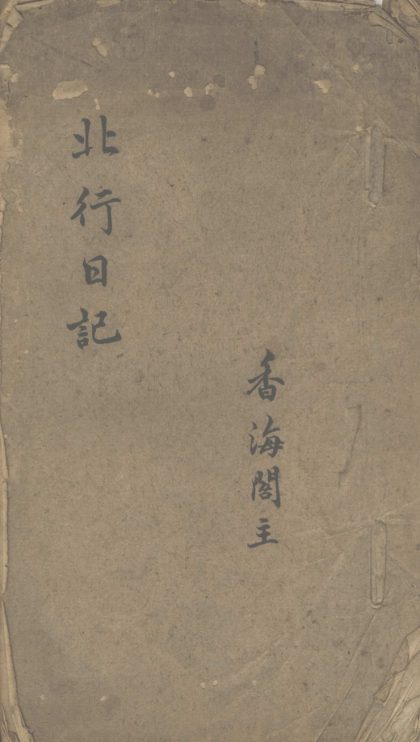 北行日記
香海閣主